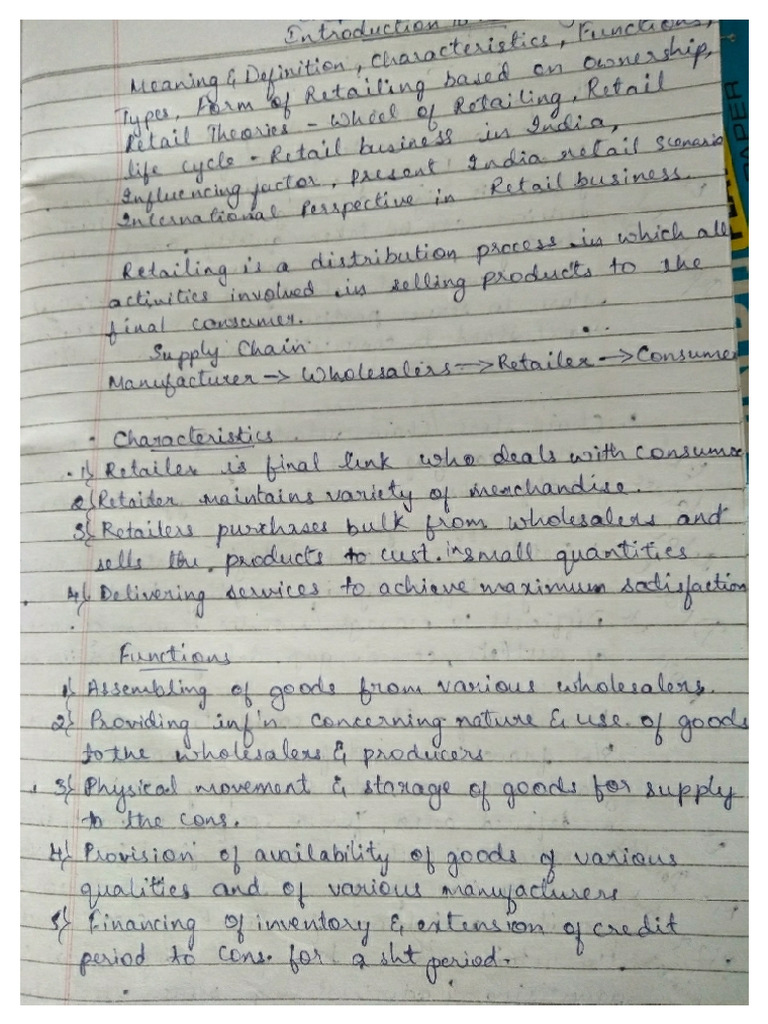 Introduction to
Meaning & Definition, Characteristics, Functions,
Types, Form of Retailing based on ownership,
Retail Theories - Wheel of Retailing, Retail
life cycle - Retail business in India,
Influencing factor, Present India retail Scenario
International Perspective in Retail business.
Retailing is a distribution process in which all
activities involved in selling products to the
final consumer.
Supply Chain
Manufacturer -> Wholesalers -> Retailer -> Consumer
Characteristics
1) Retailer is final link who deals with consumer
2) Retailer maintains variety of merchandise.
3) Retailers purchases bulk from wholesalers and
sells the products to cust. in small quantities
4) Delivering services to achieve maximum satisfaction
Functions
1) Assembling of goods from various wholesalers.
2) Providing inf'n concerning nature & use of goods
to the wholesalers & producers
3) Physical movement & storage of goods for supply
to the cons.
4) Provision of availability of goods of various
qualities and of various manufacturers
5) Financing of inventory & extension of credit
period to cons. for a sht period.